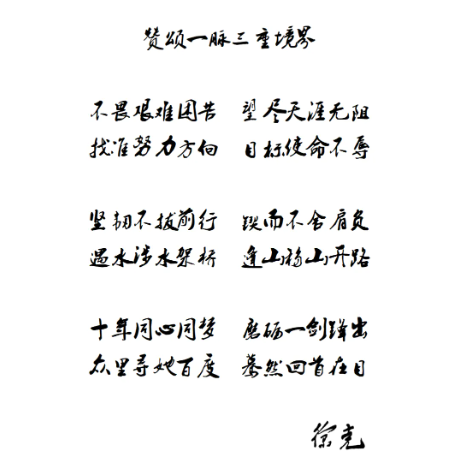 赞颂一脉三重境界
不畏艰难困苦 望尽天涯无阻
找准努力方向 目标使命不辱
坚韧不拔前行 锲而不舍肩负
遇水涉水架桥 逢山移山开路
十年同心同梦 磨砺一剑铎出
众里寻她百度 蓦然回首在目
徐克